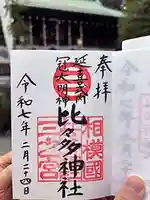 奉拝
延喜式内
冠大明神
比々多神社
相模國
三之宮
令和七年二月二十四日